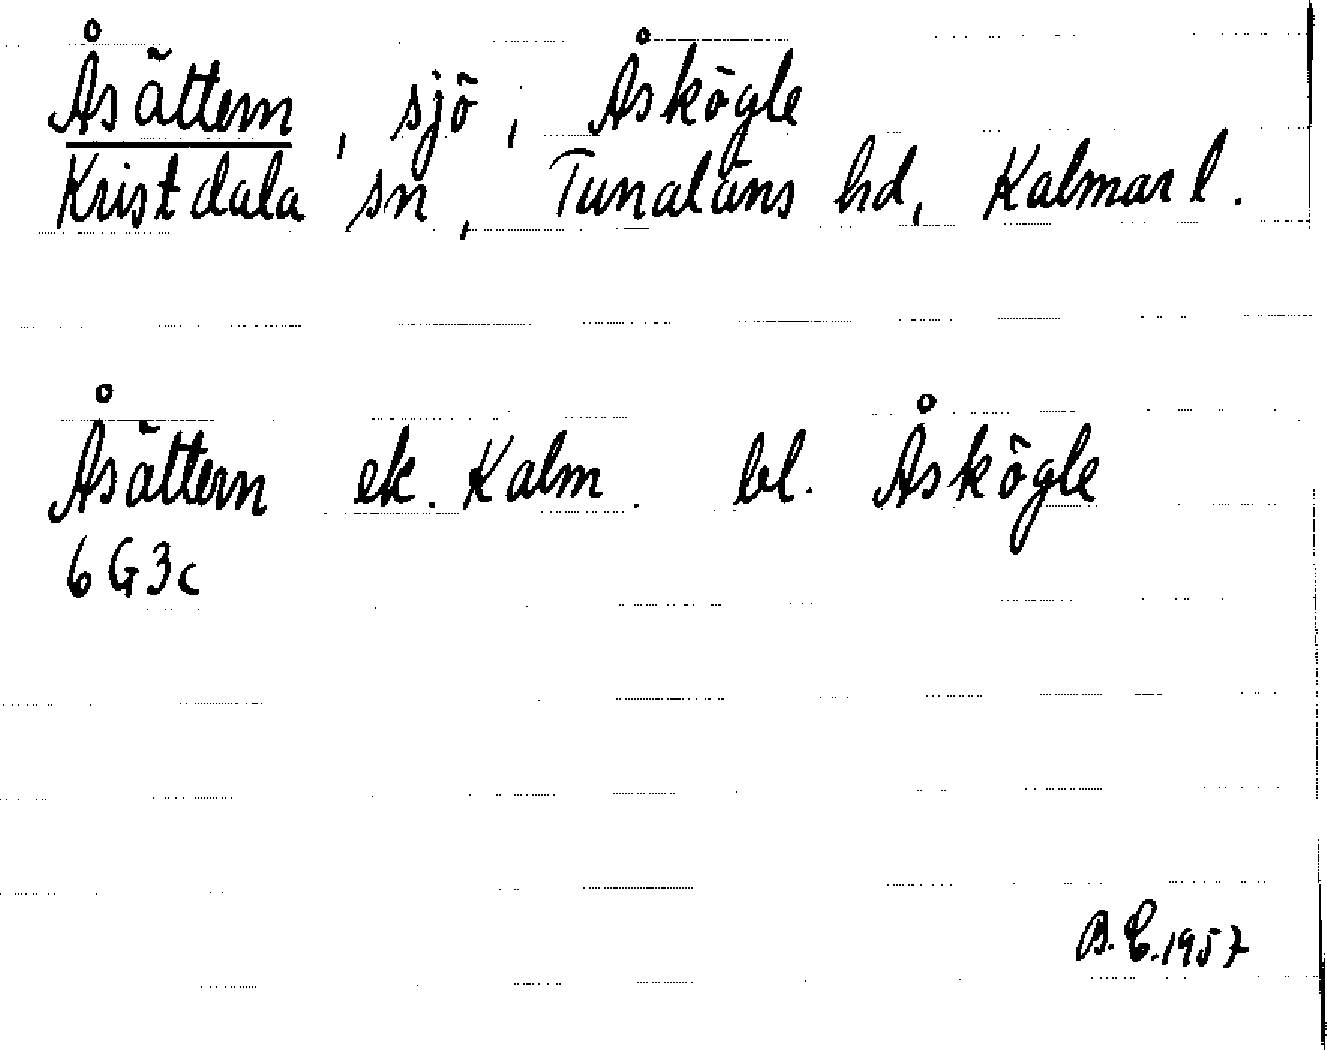 Åsättern, sjö, Åskögle
Kristdala sn, Tunaläns hd, Kalmar l.
Åsättern ek. Kalm. bl. Åskögle
6G3c
B.E.1957